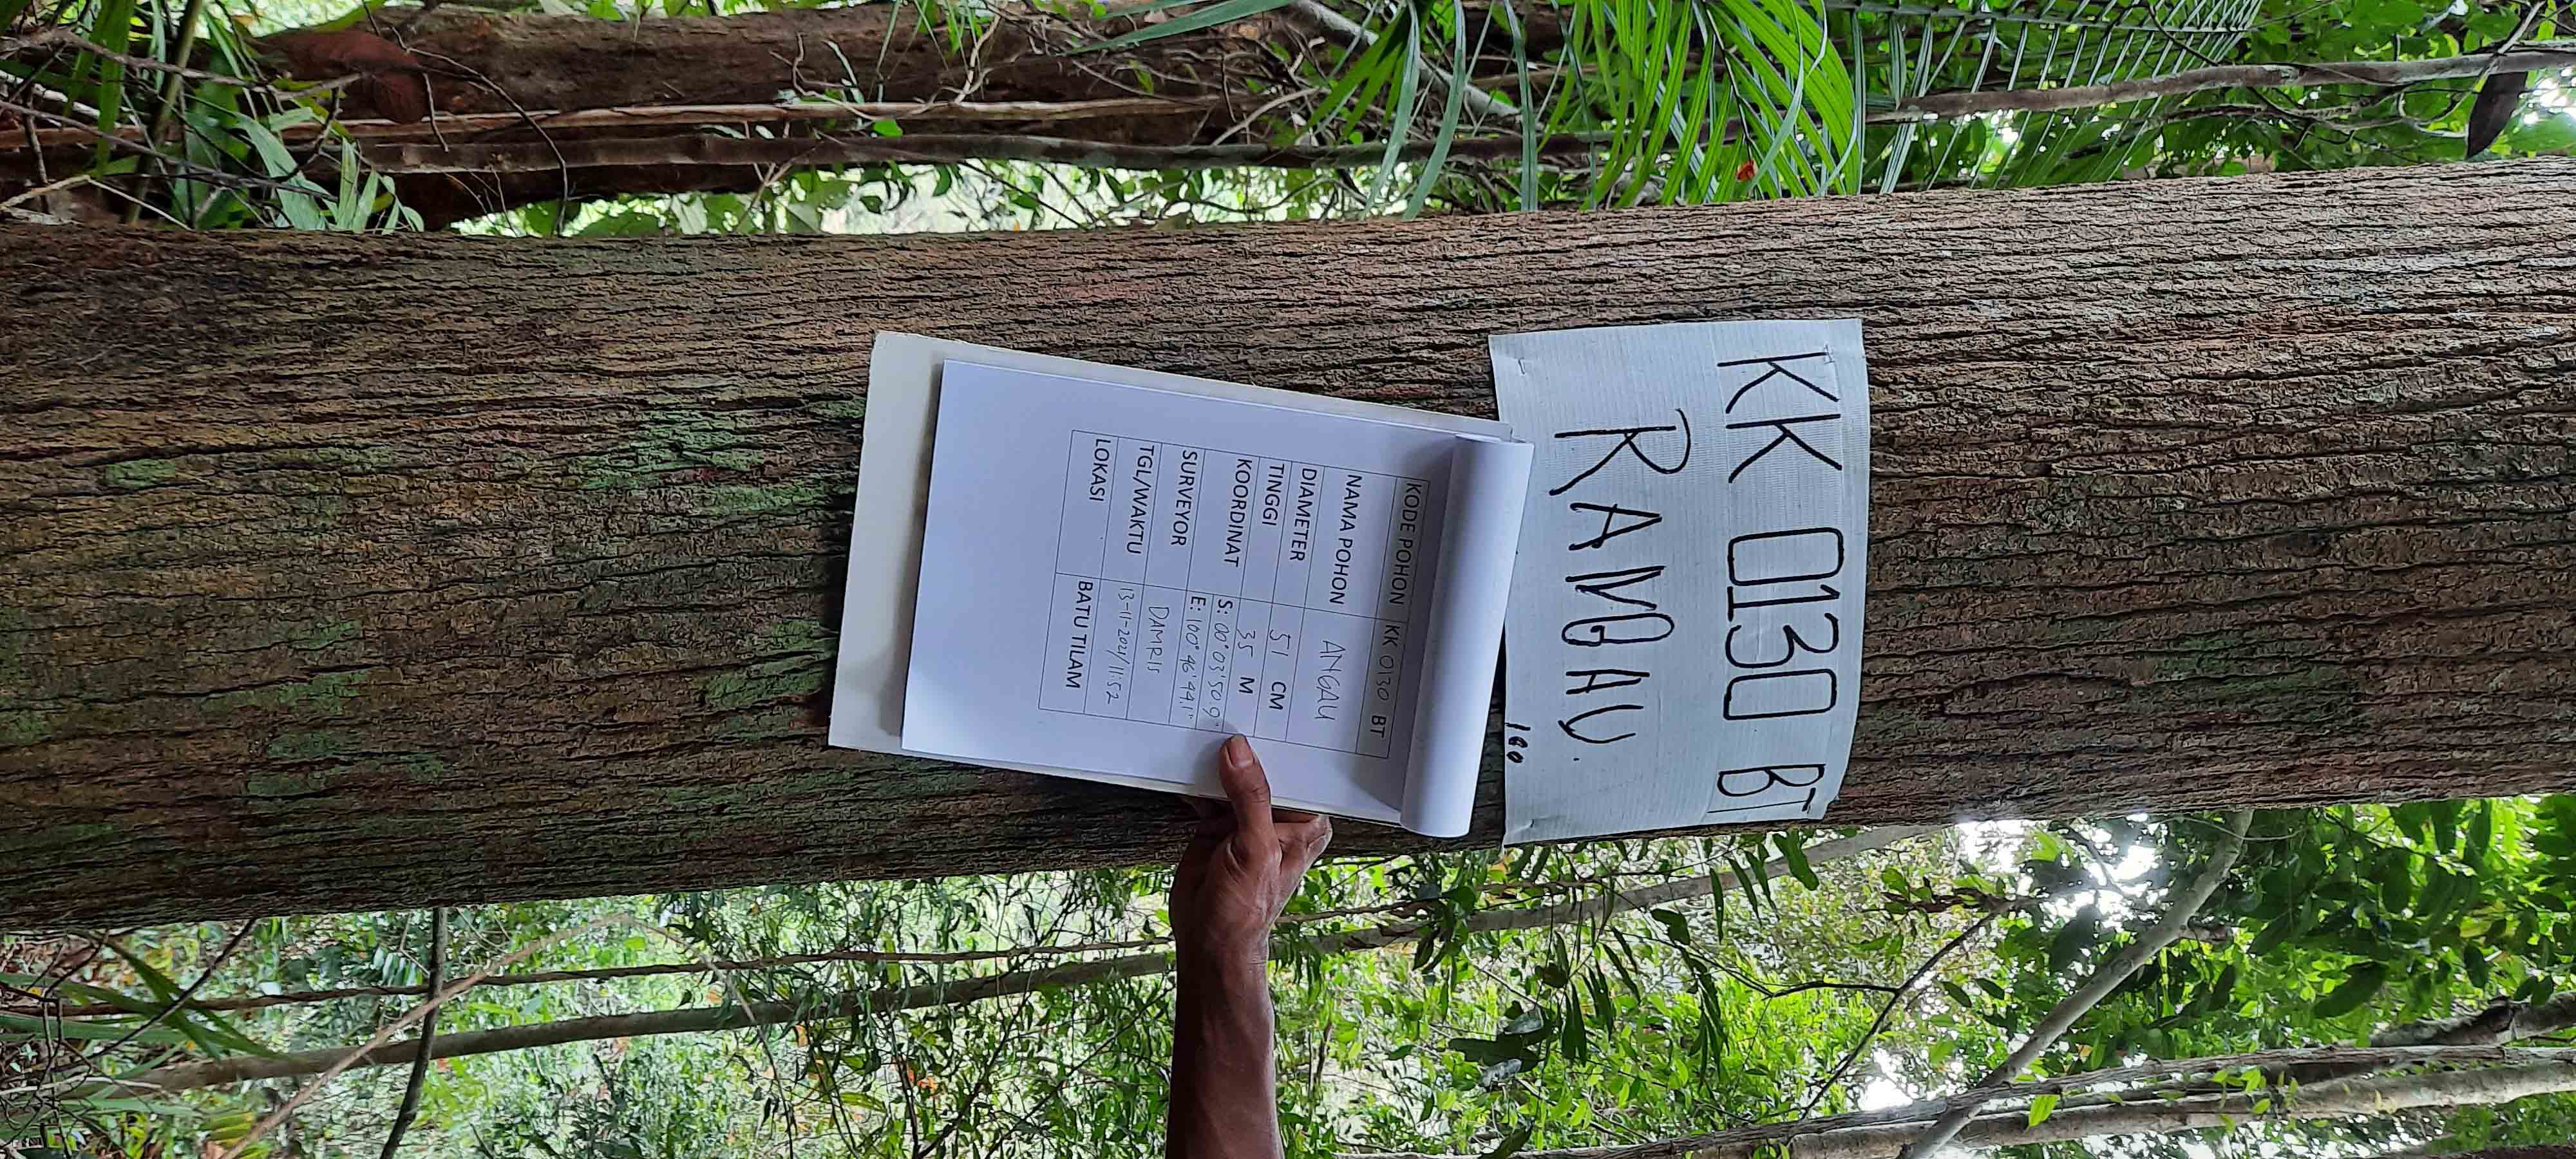 KK 0130 BT
RANGAU
100
KODE POHON KK 0130 BT
NAMA POHON ANGAU
DIAMETER 51 CM
TINGGI 35 M
KOORDINAT S: 00° 03' 50.9"
E: 100° 46' 44.1"
SURVEYOR DAMRIS
TGL/WAKTU 13-11-2021/11:52
LOKASI BATU TILAM